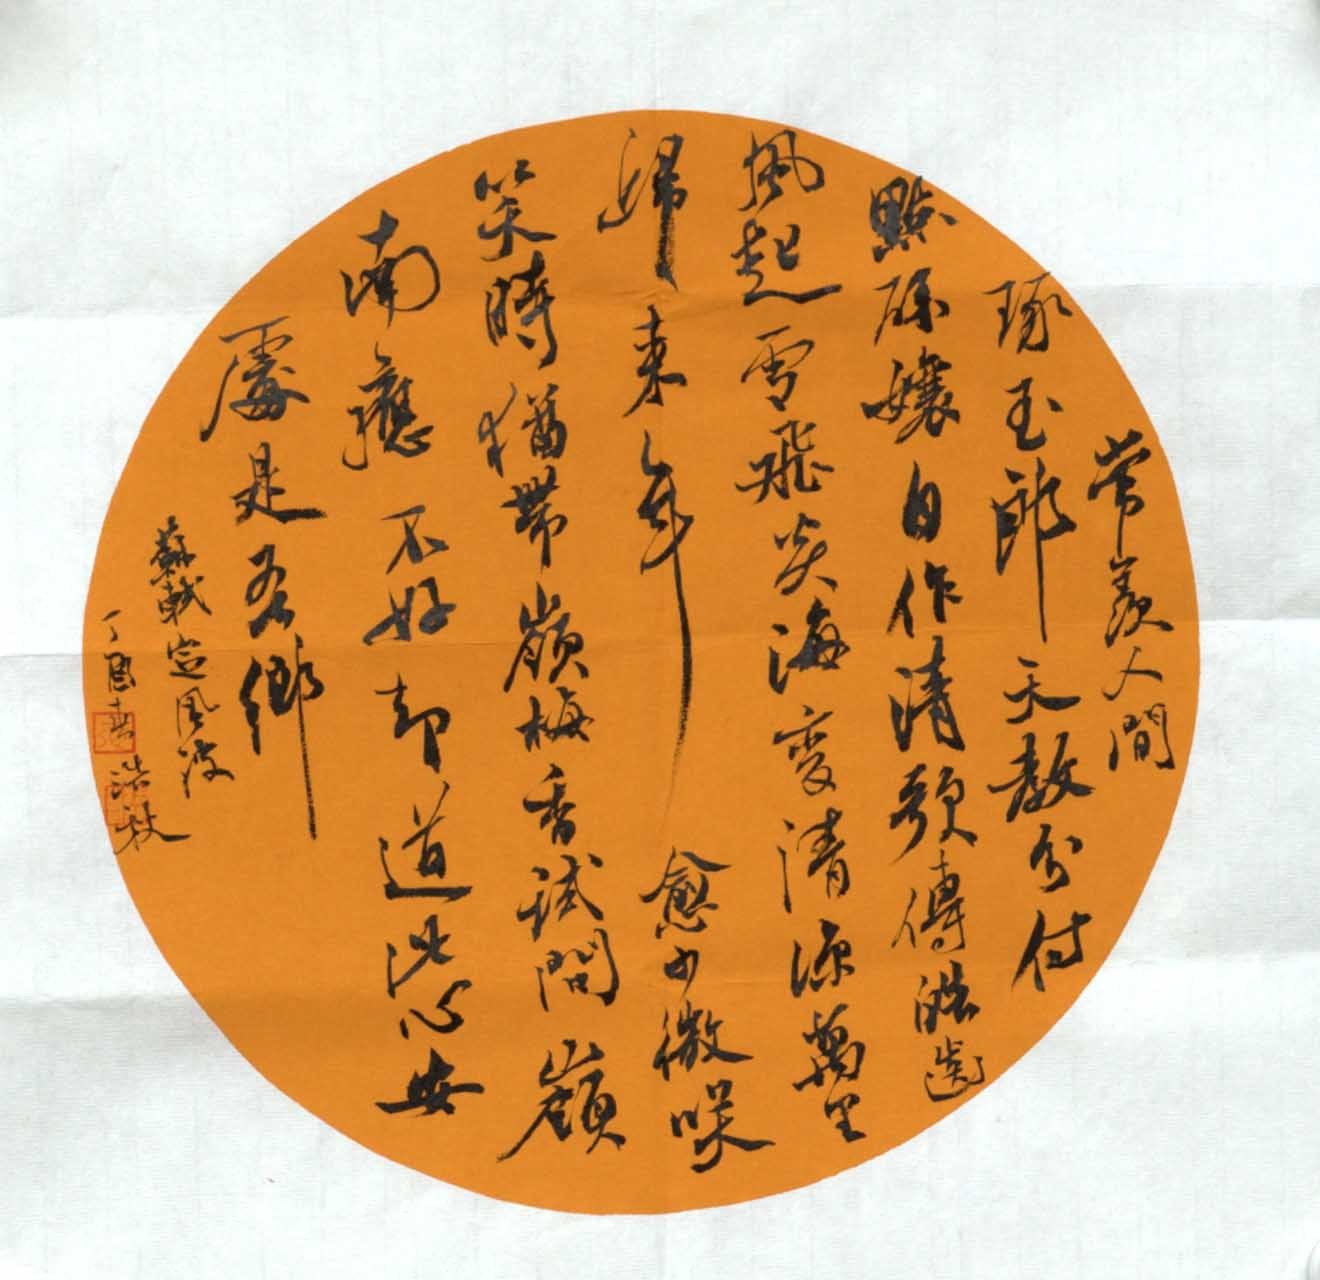 常羨人間
琢玉郎天教分付
點酥孃自作清歌傳皓齒
風起雪飛炎海變清涼萬里
歸來年愈少微笑
笑時猶帶嶺梅香試問嶺
南應不好却道此心安
處是吾鄉
蘇軾定風波
丁酉春浩秋